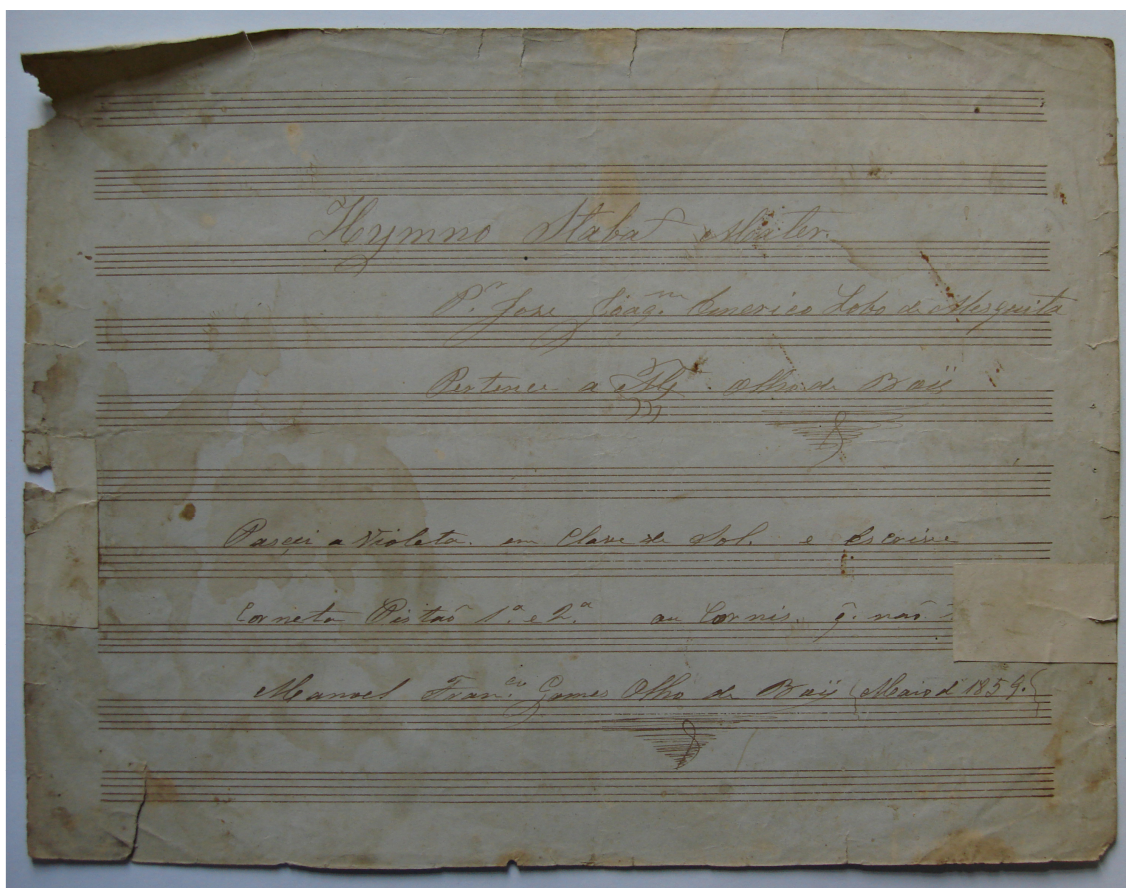 Hymno Stabat Mater.
P.r Jose Joaq.m Emerico Lobo de Mesquita
Pertence a Olho de Boii
Pascei a Violeta. em Clave de Sol. e Escrivi
Corneta Pistaõ 1.a e 2.a ou Cornis. q. naõ
Manoel Fran.co Gomes Olho de Boij (Maio d 1859.)